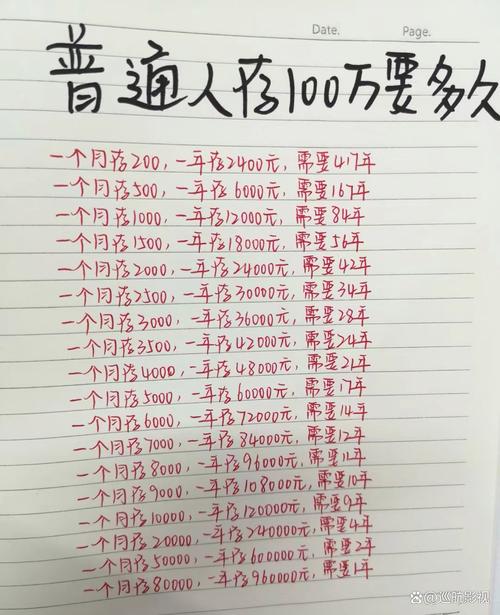 Date.  Page.
普通人存100万要多久
一个月存200,一年存2400元,需要417年
一个月存500,一年存6000元,需要167年
一个月存1000,一年存12000元,需要84年
一个月存1500,一年存18000元,需要56年
一个月存2000,一年存24000元,需要42年
一个月存2500,一年存30000元,需要34年
一个月存3000,一年存36000元,需要28年
一个月存3500,一年存42000元,需要24年
一个月存4000,一年存48000元,需要21年
一个月存5000,一年存60000元,需要17年
一个月存6000,一年存72000元,需要14年
一个月存7000,一年存84000元,需要12年
一个月存8000,一年存96000元,需要11年
一个月存9000,一年存108000元,需要10年
一个月存10000,一年存120000元,需要9年
一个月存20000,一年存240000元,需要4年
一个月存50000,一年存600000元,需要2年
一个月存80000,一年存960000元,需要1年
@巡航影视